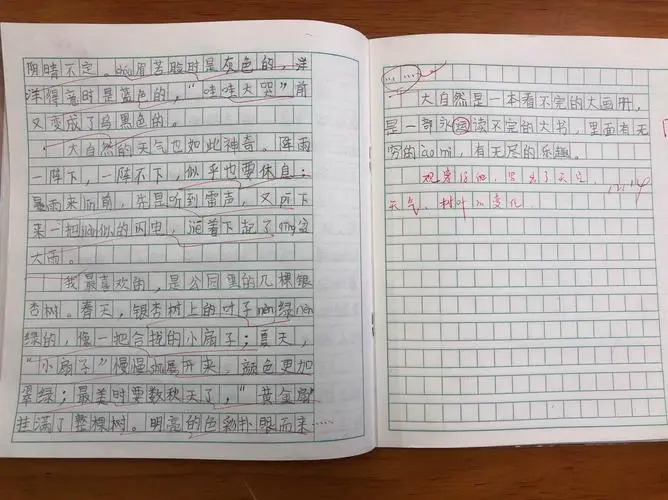 阴晴不定。chóu眉苦脸时是灰色的，洋
洋得意时是蓝色的，“哇哇大哭”前
又变成了乌黑色的。
大自然的天气也如此神奇。阵雨
一阵下，一阵不下，似乎也要休息；
暴雨来临前，先是听到雷声，又 下
来一把 似的闪电，接着下起了qīng盆
大雨。
我最喜欢的，是公园里的几棵银
杏树。春天，银杏树上的叶子nèn绿nèn
绿的，像一把合拢的小扇子；夏天，
“小扇子”慢慢shū展开来，颜色更加
翠绿；最美时要数秋天了，“黄金扇”
挂满了整棵树。明亮的色彩扑眼而来……
……
大自然是一本看不完的大画册，
是一部永远读不完的大书，里面有无
穷的ào mì，有无尽的乐趣。
观察仔细，写出了天空、
天气、树叶的变化。